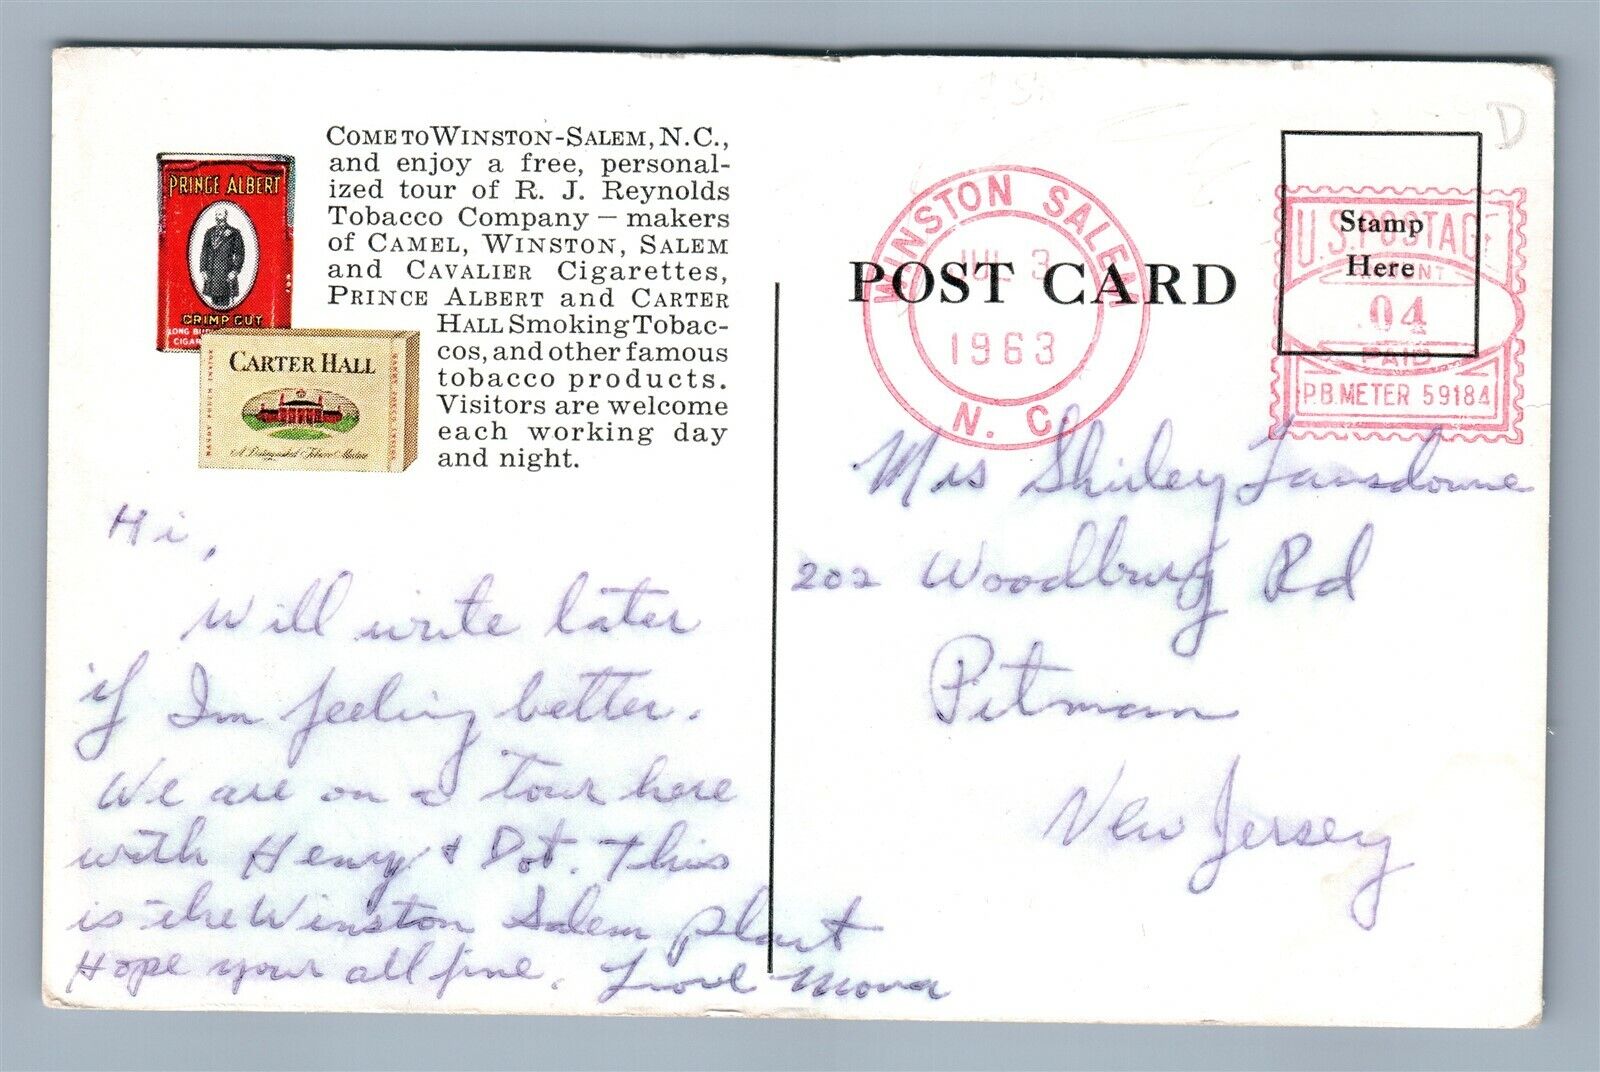 COME TO WINSTON-SALEM, N.C.,
and enjoy a free, personal-
ized tour of R. J. Reynolds
Tobacco Company — makers
of CAMEL, WINSTON, SALEM
and CAVALIER Cigarettes,
PRINCE ALBERT and CARTER
HALL Smoking Tobac-
cos, and other famous
tobacco products.
Visitors are welcome
each working day
and night.
PRINCE ALBERT
CRIMP CUT
LONG BU
CIGAR
CARTER HALL
A Distinguished Tobacco Mixture
HANDY POUCH INSIDE
Hi,
Will write later
if Im feeling better.
We are on a tour here
with Henry & Dot. This
is the Winston Salem plant
Hope your all fine. Love Mona
POST CARD
WINSTON SALEM
JUL 3
1963
N. C.
Stamp
Here
U.S. POSTAGE
04
PAID
P.B. METER 59184
D
Mrs Shirley Lansdowne
202 Woodburg Rd
Pitman
New Jersey